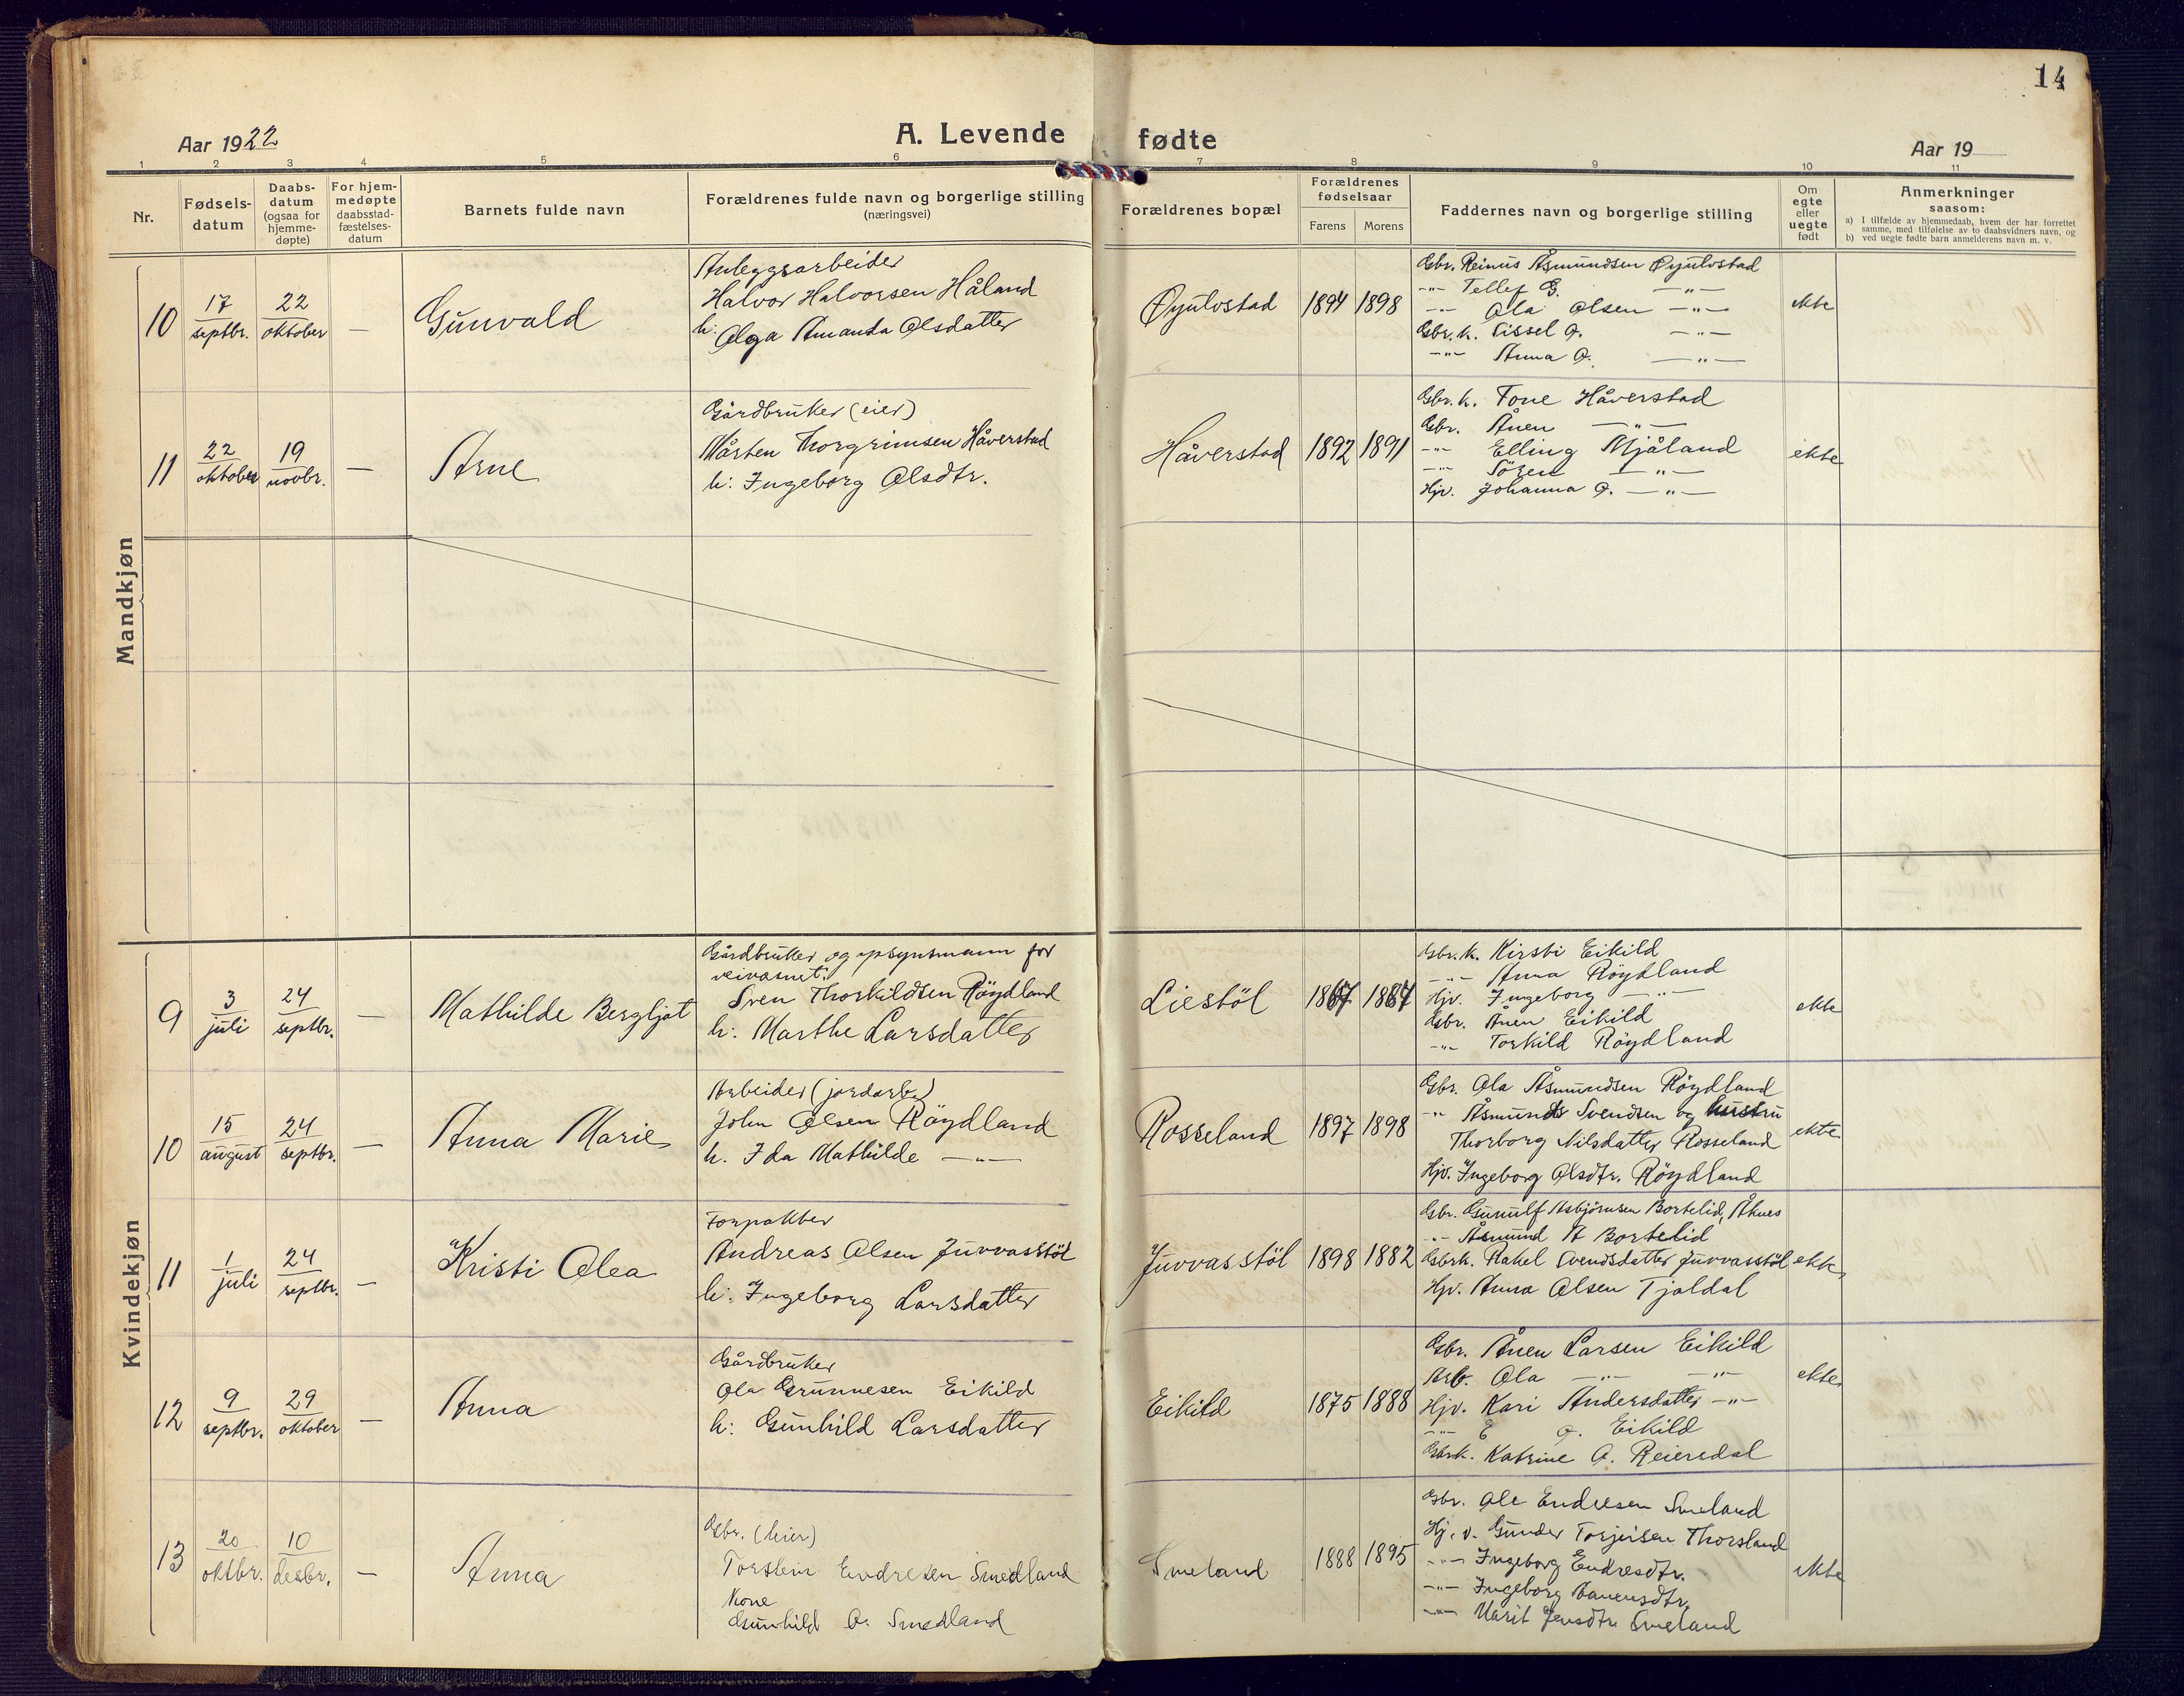 14
Aar 1922
A. Levende fødte
Aar 19
1 2 3 4 5 6 7 8 9 10 11
Nr.
Fødsels-
datum
Daabs-
datum
(ogsaa for
hjemme-
døpte)
For hjem-
medøpte
daabsstad-
fæstelses-
datum
Barnets fulde navn
Forældrenes fulde navn og borgerlige stilling
(næringsvei)
Forældrenes bopæl
Forældrenes
fødselsaar
Farens Morens
Faddernes navn og borgerlige stilling
Om
egte
eller
uegte
født
Anmerkninger
saasom:
a) I tilfælde av hjemmedaab, hvem der har forrettet
samme, med tilføielse av to daabsvidners navn, og
b) ved uegte fødte barn anmelderens navn m. v.
Mandkjøn
10
17
septbr.
22
oktober
—
Gunvald
Anleggsarbeider
Halvor Halvorsen Håland
h: Olga Amanda Olsdatter
Øyulvstad
1894 1898
Gbr. Reinus Åsmundsen Øyulvstad
-"- Tellef G. -"-
-"- Ola Olsen -"-
Gbr. k. Sissel O. -"-
-"- Anna O. -"-
ekte
11
22
oktober
19
novbr.
—
Arne
Gårdbruker (eier)
Mårten Thorgrimsen Håverstad
h: Ingeborg Olsdtr.
Håverstad
1892 1891
Gbr. k. Tone Håverstad
Gbr. Ånen -"-
-"- Elling Mjåland
-"- Sören -"-
Hjv. Johanna O. -"-
ekte
Kvindekjøn
9
3
juli
24
septbr.
—
Mathilde Bergljot
Gårdbruker og opsynsmann for
veivæsnet:
Sven Thorkildsen Röydland
h: Marthe Larsdatter
Liestöl
1867 1884
Gbr. k. Kirsti Eikild
-"- Anna Röydland
Hjv. Ingeborg -"-
Gbr. Ånen Eikild
-"- Torkild Röydland
ekte
10
15
august
24
septbr.
—
Anna Marie
Arbeider (jordarb.)
John Olsen Röydland
h. Ida Mathilde -"-
Rosseland
1897 1898
Gbr. Ola Åsmundsen Röydland
-"- Åsmund Svendsen og hustru
Thorborg Nilsdatter Rosseland
Hjv. Ingeborg Olsdtr. Röydland
ekte
11
1
juli
24
septbr.
—
Kristi Olea
Forpakter
Andreas Olsen Juvvasstöl
h: Ingeborg Larsdatter
Juvvasstöl
1898 1882
Gbr. Gunulf Asbjörnsen Bortelid, Åknes
-"- Åsmund A Bortelid
Gbrk. Rakel Svendsdatter Juvvasstöl
Hjv. Anna Olsen Tjaldal
ekte
12
9
septbr.
29
oktober
—
Anna
Gårdbruker
Ola Grunnesen Eikild
h: Gunhild Larsdatter
Eikild
1875 1888
Gbr. Ånen Larsen Eikild
Arb. Ola -"- -"-
Hjv. Kari Andersdatter -"-
-"- E O. Eikild
Gbrk. Katrine O. Reiersdal
ekte
13
20
oktbr.
10
desbr.
—
Anna
Gbr. (eier)
Torstein Endresen Smedland
Kone
Gunhild O. Smedland
Smeland
1888 1895
Gbr. Ole Endresen Smeland
Hj. v. Gunder Torjusen Thorsland
-"- Ingeborg Endresdtr.
-"- Ingeborg
-"- Marit Jensdtr. Smeland
ekte